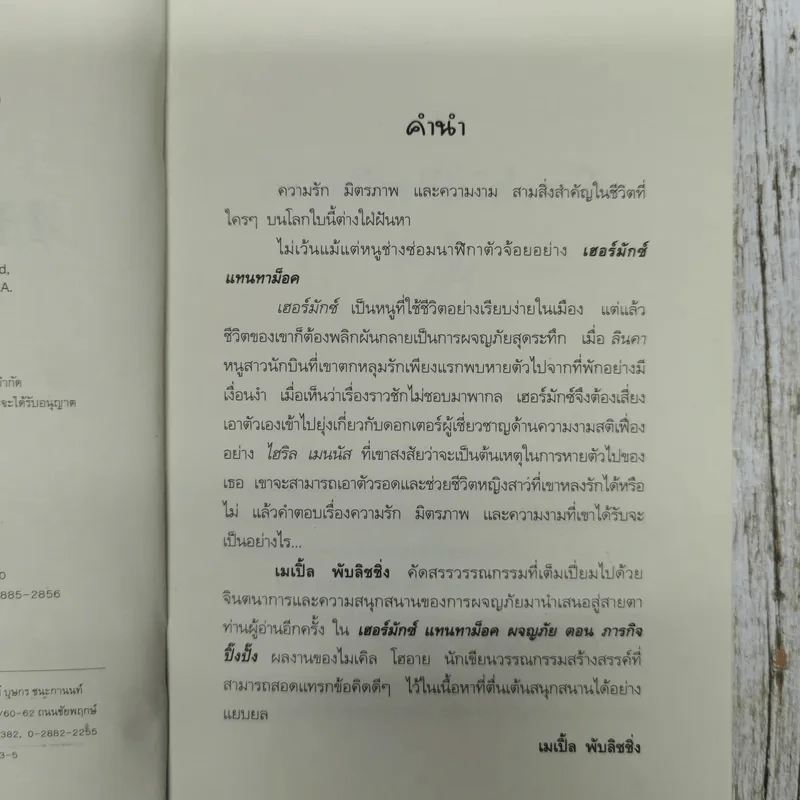 d,
A.
จำกัด
จะได้รับอนุญาต
0
885-2856
บุษกร ชนะกานนท์
/60-62 ถนนชัยพฤกษ์
382, 0-2882-2255
3-5
คำนำ
ความรัก มิตรภาพ และความงาม สามสิ่งสำคัญในชีวิตที่
ใครๆ บนโลกใบนี้ต่างใฝ่ฝันหา
ไม่เว้นแม้แต่หนูช่างซ่อมนาฬิกาตัวจ้อยอย่าง เฮอร์มักซ์
แทนทาม็อค
เฮอร์มักซ์ เป็นหนูที่ใช้ชีวิตอย่างเรียบง่ายในเมือง แต่แล้ว
ชีวิตของเขาก็ต้องพลิกผันกลายเป็นการผจญภัยสุดระทึก เมื่อ ลินคา
หนูสาวนักบินที่เขาตกหลุมรักเพียงแรกพบหายตัวไปจากที่พักอย่างมี
เงื่อนงำ เมื่อเห็นว่าเรื่องราวชักไม่ชอบมาพากล เฮอร์มักซ์จึงต้องเสี่ยง
เอาตัวเองเข้าไปยุ่งเกี่ยวกับดอกเตอร์ผู้เชี่ยวชาญด้านความงามสติเฟื่อง
อย่าง ไฮริล เมนนัส ที่เขาสงสัยว่าจะเป็นต้นเหตุในการหายตัวไปของ
เธอ เขาจะสามารถเอาตัวรอดและช่วยชีวิตหญิงสาวที่เขาหลงรักได้หรือ
ไม่ แล้วคำตอบเรื่องความรัก มิตรภาพ และความงามที่เขาได้รับจะ
เป็นอย่างไร...
เมเปิ้ล พับลิชชิ่ง คัดสรรวรรณกรรมที่เต็มเปี่ยมไปด้วย
จินตนาการและความสนุกสนานของการผจญภัยมานำเสนอสู่สายตา
ท่านผู้อ่านอีกครั้ง ใน เฮอร์มักซ์ แทนทาม็อค ผจญภัย ตอน ภารกิจ
ปิ๊งปั๊ง ผลงานของไมเคิล โฮอาย นักเขียนวรรณกรรมสร้างสรรค์ที่
สามารถสอดแทรกข้อคิดดีๆ ไว้ในเนื้อหาที่ตื่นเต้นสนุกสนานได้อย่าง
แยบยล
เมเปิ้ล พับลิชชิ่ง